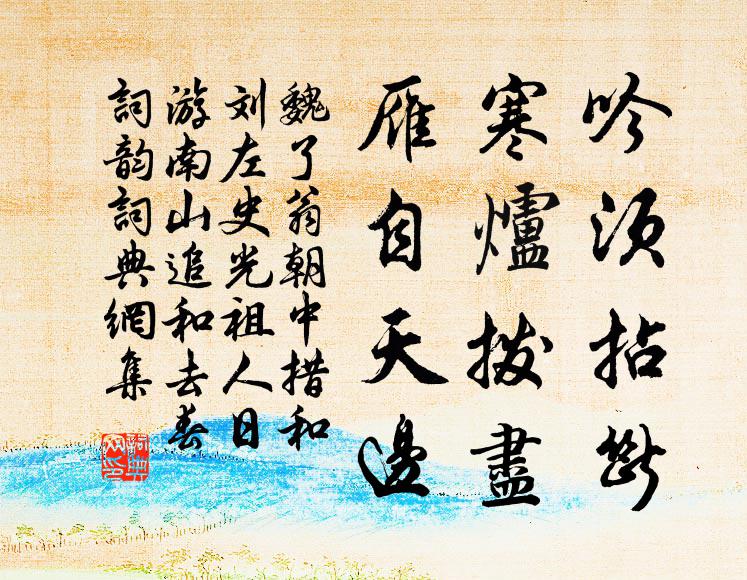 吟须拈断
寒爐拨盡
雁自天邊
魏了翁朝中措和
刘左史光祖人日
游南山追和去春
詞韵詞典網集